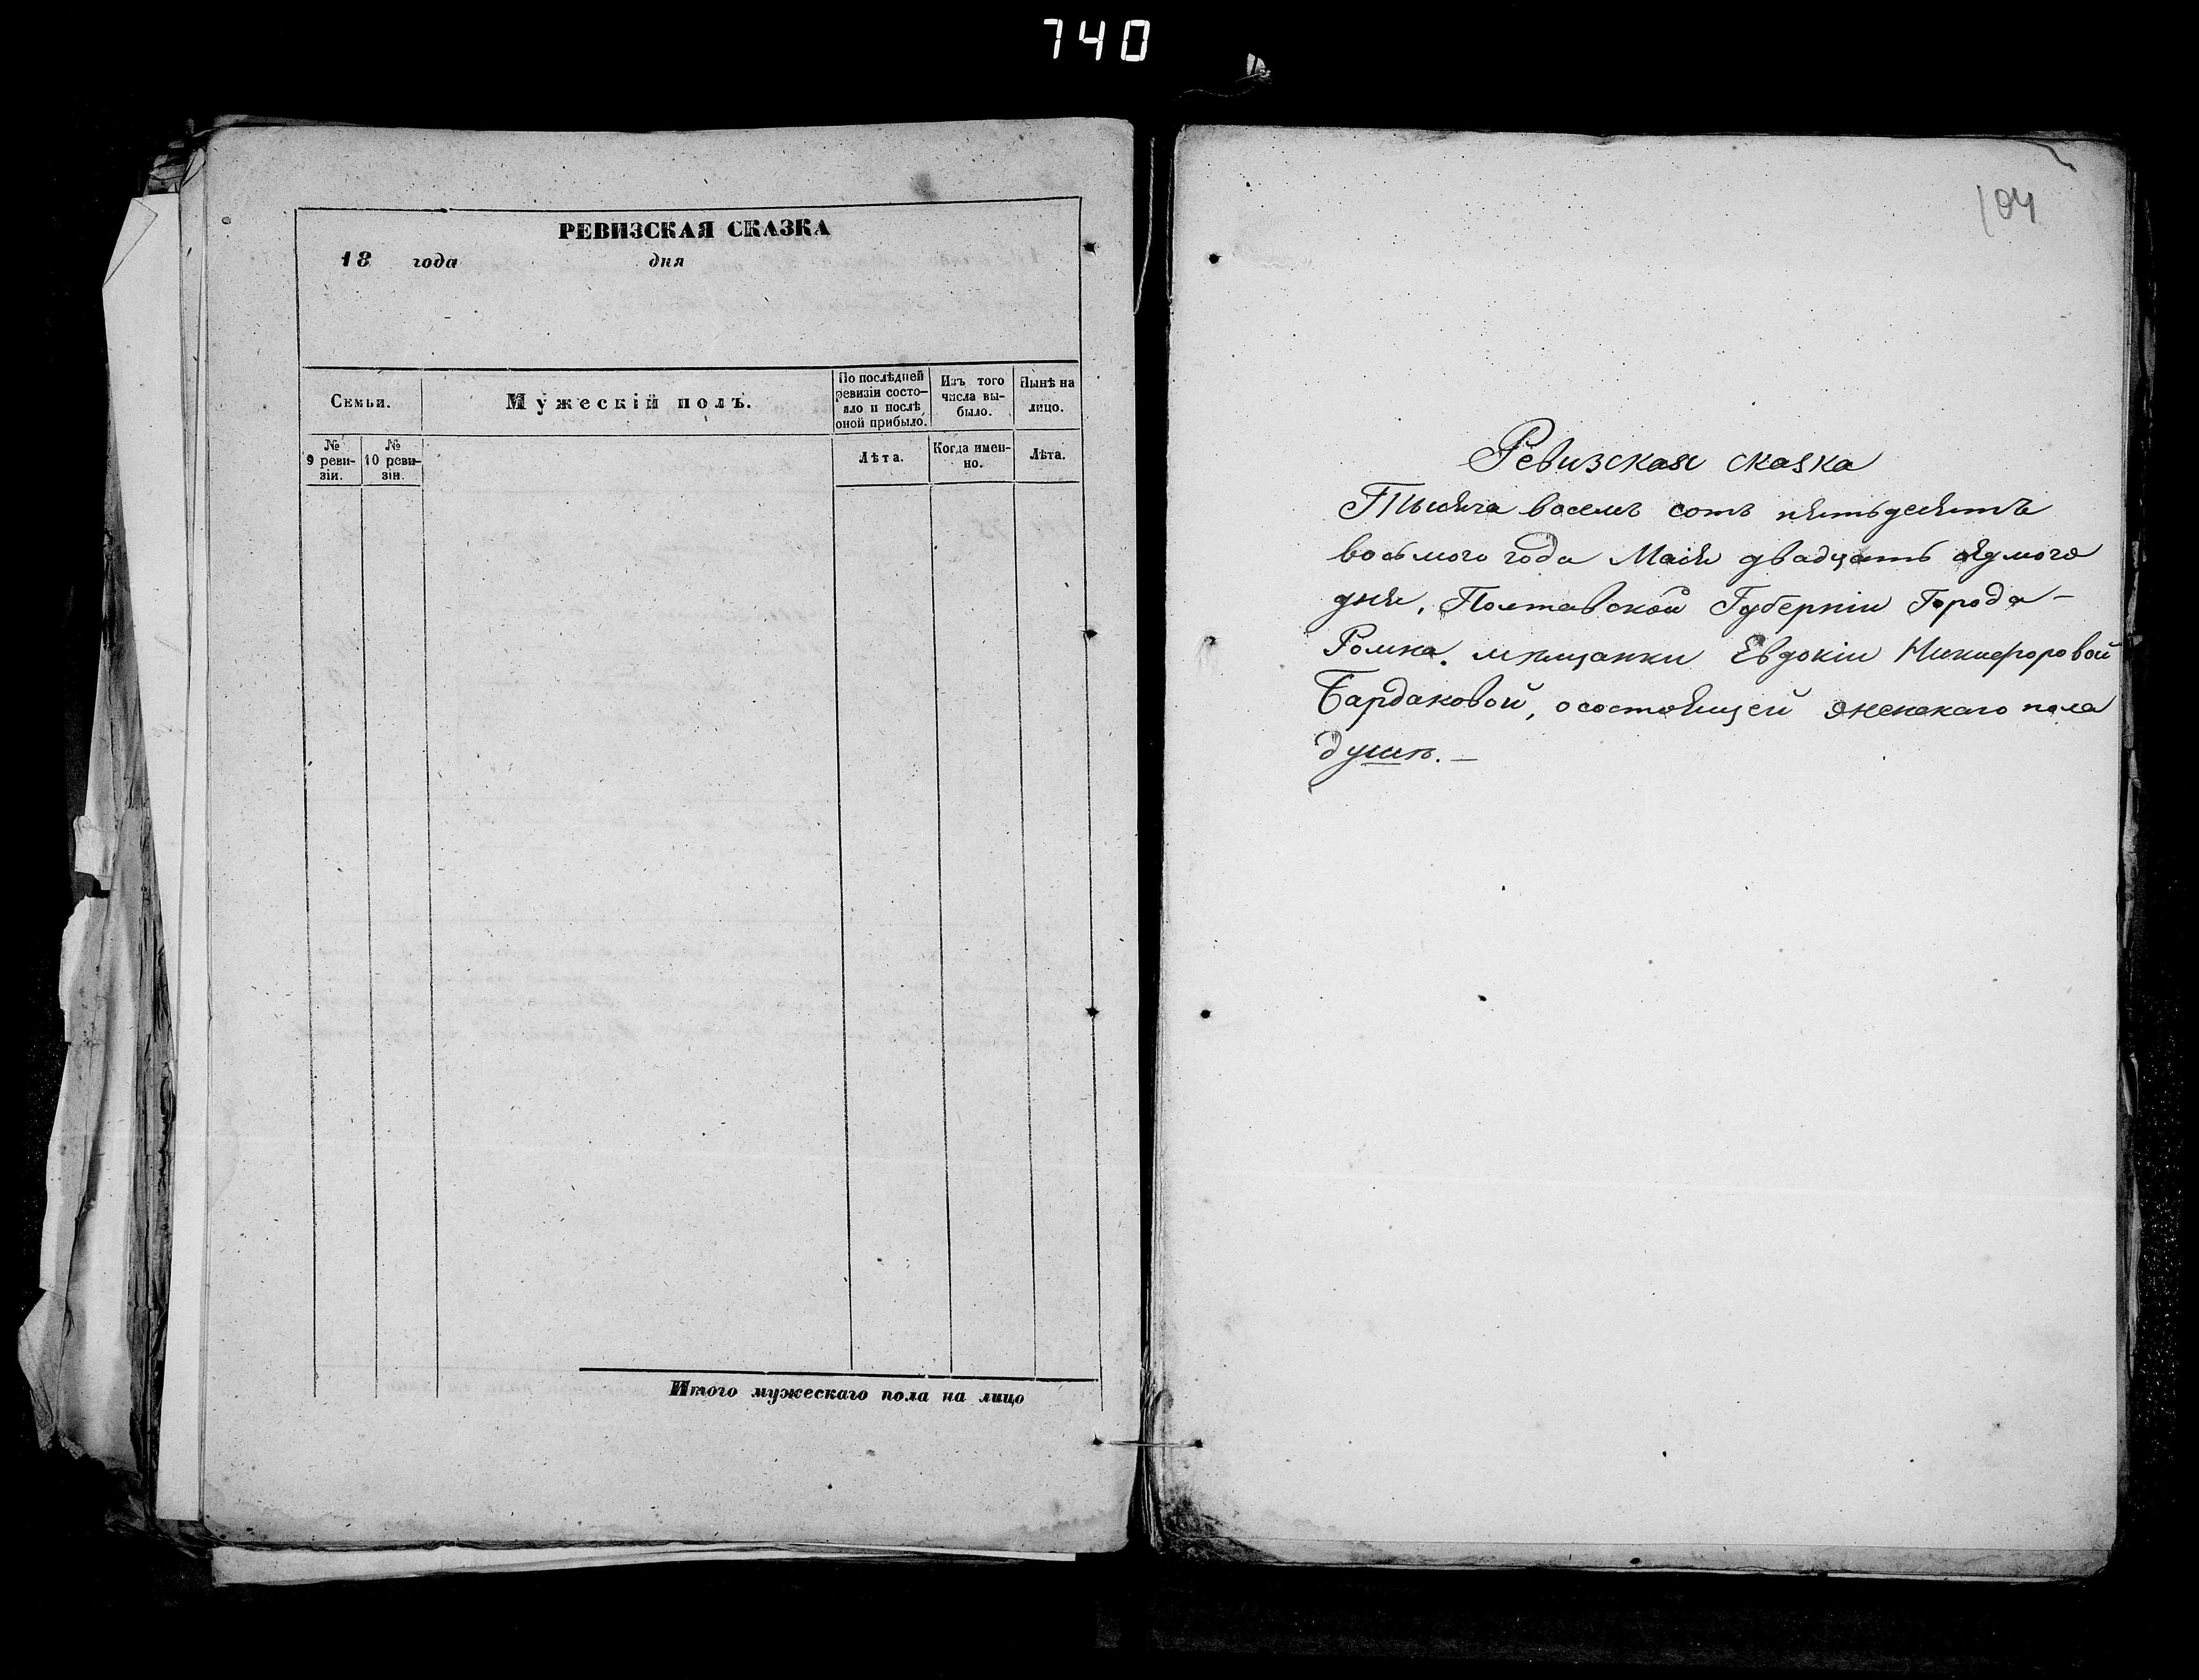 740
РЕВИЗСКАЯ СКАЗКА
18 года дня
Семьи.
Мужескій полъ.
По послѣдней ревизіи состо-
яло и послѣ
оной прибыло.
Изъ того
числа вы-
было.
Нынѣ на
лицо.
№
9 реви-
зіи.
№
10 реви-
зіи.
Лѣта.
Когда имен-
но.
Лѣта.
Итого мужескаго пола на лицо
104
Ревизская сказка
Тысяча восемъ сотъ пятьдесятъ
восьмого года Маія двадцать седмого
дня, Полтавской Губерніи Города –
Ромна. мѣщанки Евдокіи Никифоровой
Бардаковой, о состоящей женскаго пола
душѣ. –